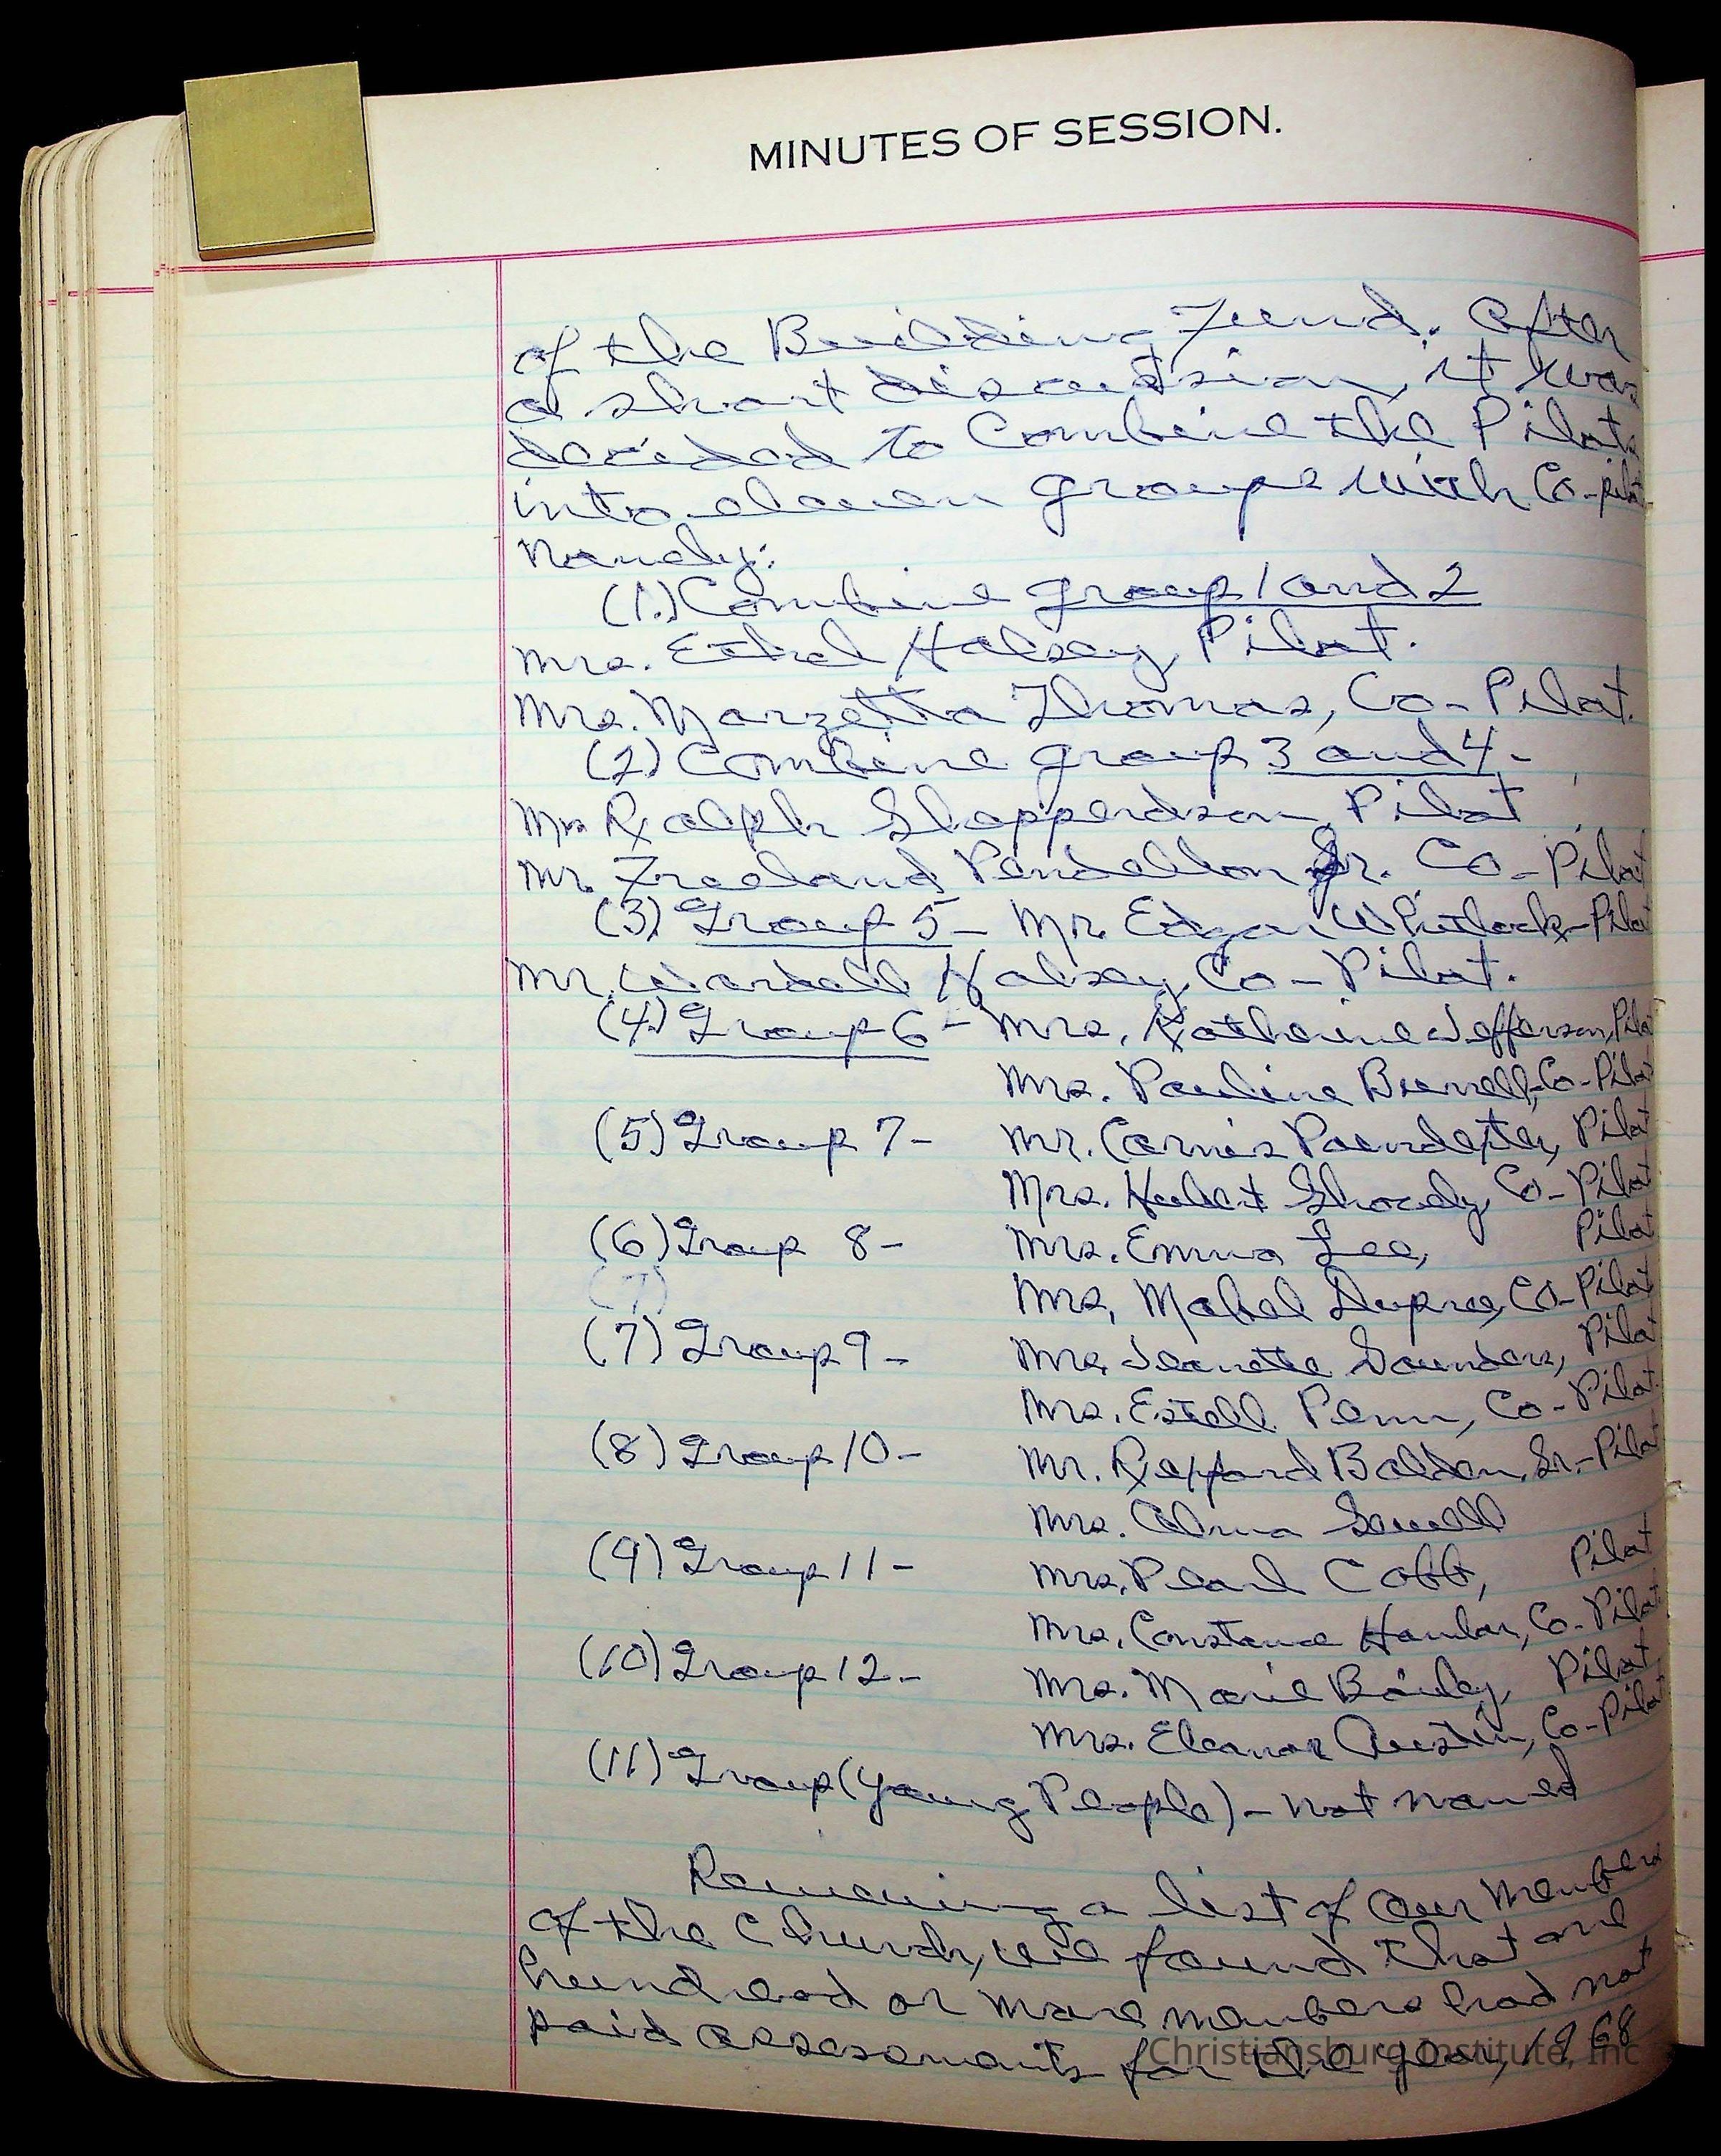 MINUTES OF SESSION.
of the Building Fund. After
a short discustsion, it was
decided to Combine the Pilots
into eleven groups with Co-pilot
Namely:
(1.) Combine group 1 and 2
Mrs. Ethel Halsey, Pilot.
Mrs. Marzetta Thomas, Co-Pilot.
(2) Combine group 3 and 4-
Mr. Ralph Shepperdson, Pilot
Mr. Freeland Pendelton Sr. Co-Pilot
(3) Group 5- Mr. Edgar Whitlock-Pilot
Mr. Wardell Halsey, Co-Pilot.
(4) Group 6- Mrs. Katherine Jefferson, Pilot
Mrs. Pauline Burrell, Co-Pilot
(5) Group 7- Mr. Cornis Poindexter, Pilot
Mrs. Hubert Shordy, Co-Pilot
(6) Group 8- Mrs. Emma Lee, Pilot
(7)
Mrs. Mabel Dupree, Co-Pilot
(7) Group 9- Mrs. Jeanette Saunders, Pilot
Mrs. Estell Penn, Co-Pilot.
(8) Group 10- Mr. Rexford Balden, Sr.-Pilot
Mrs. Alma Sewell
(9) Group 11- Mrs. Pearl Cobb, Pilot
Mrs. Constance Co-Pilot.
(10) Group 12- Mrs. Marie Bailey, Pilot
Mrs. Eleanor Austin, Co-Pilot
(11) Group (Young People)- not named
a list of our members
of the Church, we found that one
hundread or more members had not
paid assesments for the year, 1968
Christiansburg Institute, Inc